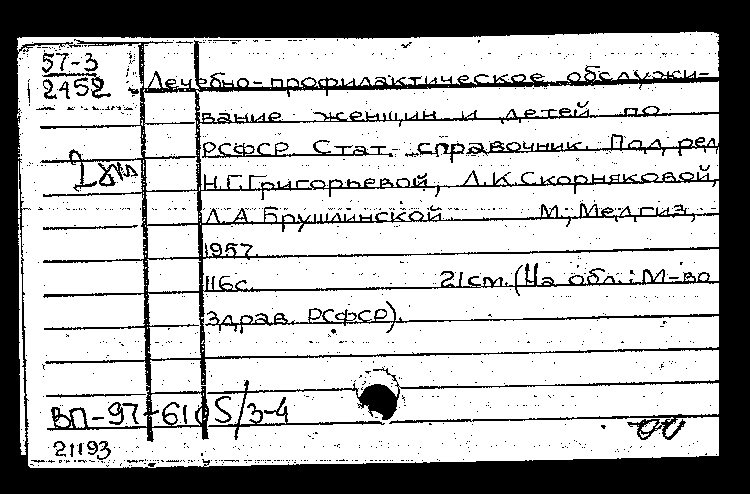 57-3
2452
Лечебно-профилактическое обслужи-
вание женщин и детей по
РСФСР. Стат. справочник. Под ред
Н.Г.Григорьевой, Л.К.Скорняковой,
Л.А.Брушлинской М., Медгиз,
1957.
116с. 21см. (На обл.: М-во
здрав. РСФСР).
ВП-97-6105/3-4
21193